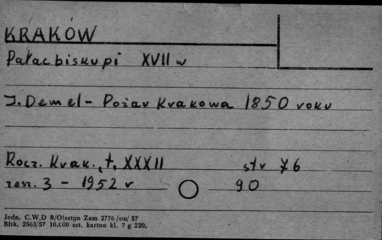 KRAKÓW
Pałac biskupi XVII w
J. Demel - Pożar Krakowa 1850 roku
Rocz. Krak., t. XXXII str 76
zesz. 3 - 1952 r 90
Jedn. C.W.D B/Olsztyn Zam 2776/on/57
Bltk. 2563/57 10.000 szt. karton kl. 7 g 220.